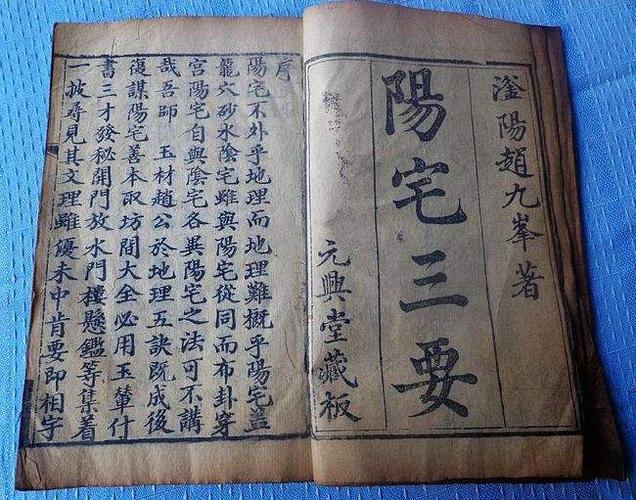 滏陽趙九峯著
陽宅三要
元興堂藏板
序
陽宅不外乎地理而地理難概乎陽宅盖
龍穴砂水陰宅雖與陽宅從同而布卦穿
宮陽宅自與陰宅各異陽宅之法可不講
哉吾師 玉材趙公於地理五訣既成後
復謀陽宅善本取坊間大全必用玉輦什
書三才發秘開門放水門樓懸鑑等集着
一披尋見其文理雖優未中肯要即相宅